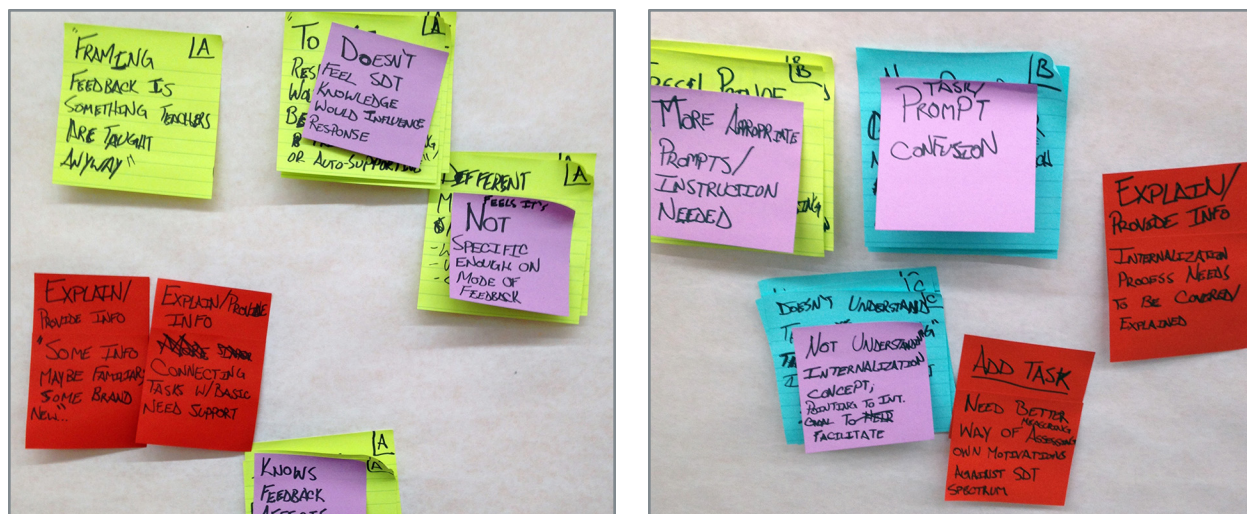 "FRAMING
A
FEEDBACK IS
SOMETHING TEACHERS
ARE TAUGHT
ANYWAY"
"TO
A
RES
WO
BE
OR AUTO-SUPPORTING"
DOESN'T
FEEL SDT
KNOWLEDGE
WOULD INFLUENCE
RESPONSE
DIFFERENT
A
M
FEELS IT'S
NOT
SPECIFIC
ENOUGH ON
MODE OF
FEEDBACK
EXPLAIN/
PROVIDE INFO
"SOME INFO
MAYBE FAMILIAR
SOME BRAND
NEW..."
EXPLAIN/PROVIDE
INFO
CONNECTING
TASKS W/BASIC
NEED SUPPORT
A
A
KNOWS
FEEDBACK
AFFECTS
B
MORE APPROPRIATE
PROMPTS/
INSTRUCTION
NEEDED
B
TASK/
PROMPT
CONFUSION
EXPLAIN/
PROVIDE INFO
INTERNALIZATION
PROCESS NEEDS
TO BE COVERED/
EXPLAINED
C
DOESN'T UNDERSTAND
C
NOT UNDERSTANDING
INTERNALIZATION
CONCEPT;
POINTING TO INT.
GOAL TO HELP
FACILITATE
ADD TASK
NEED BETTER
MEASURING
WAY OF ASSESSING
OWN MOTIVATIONS
AGAINST SDT
SPECTRUM